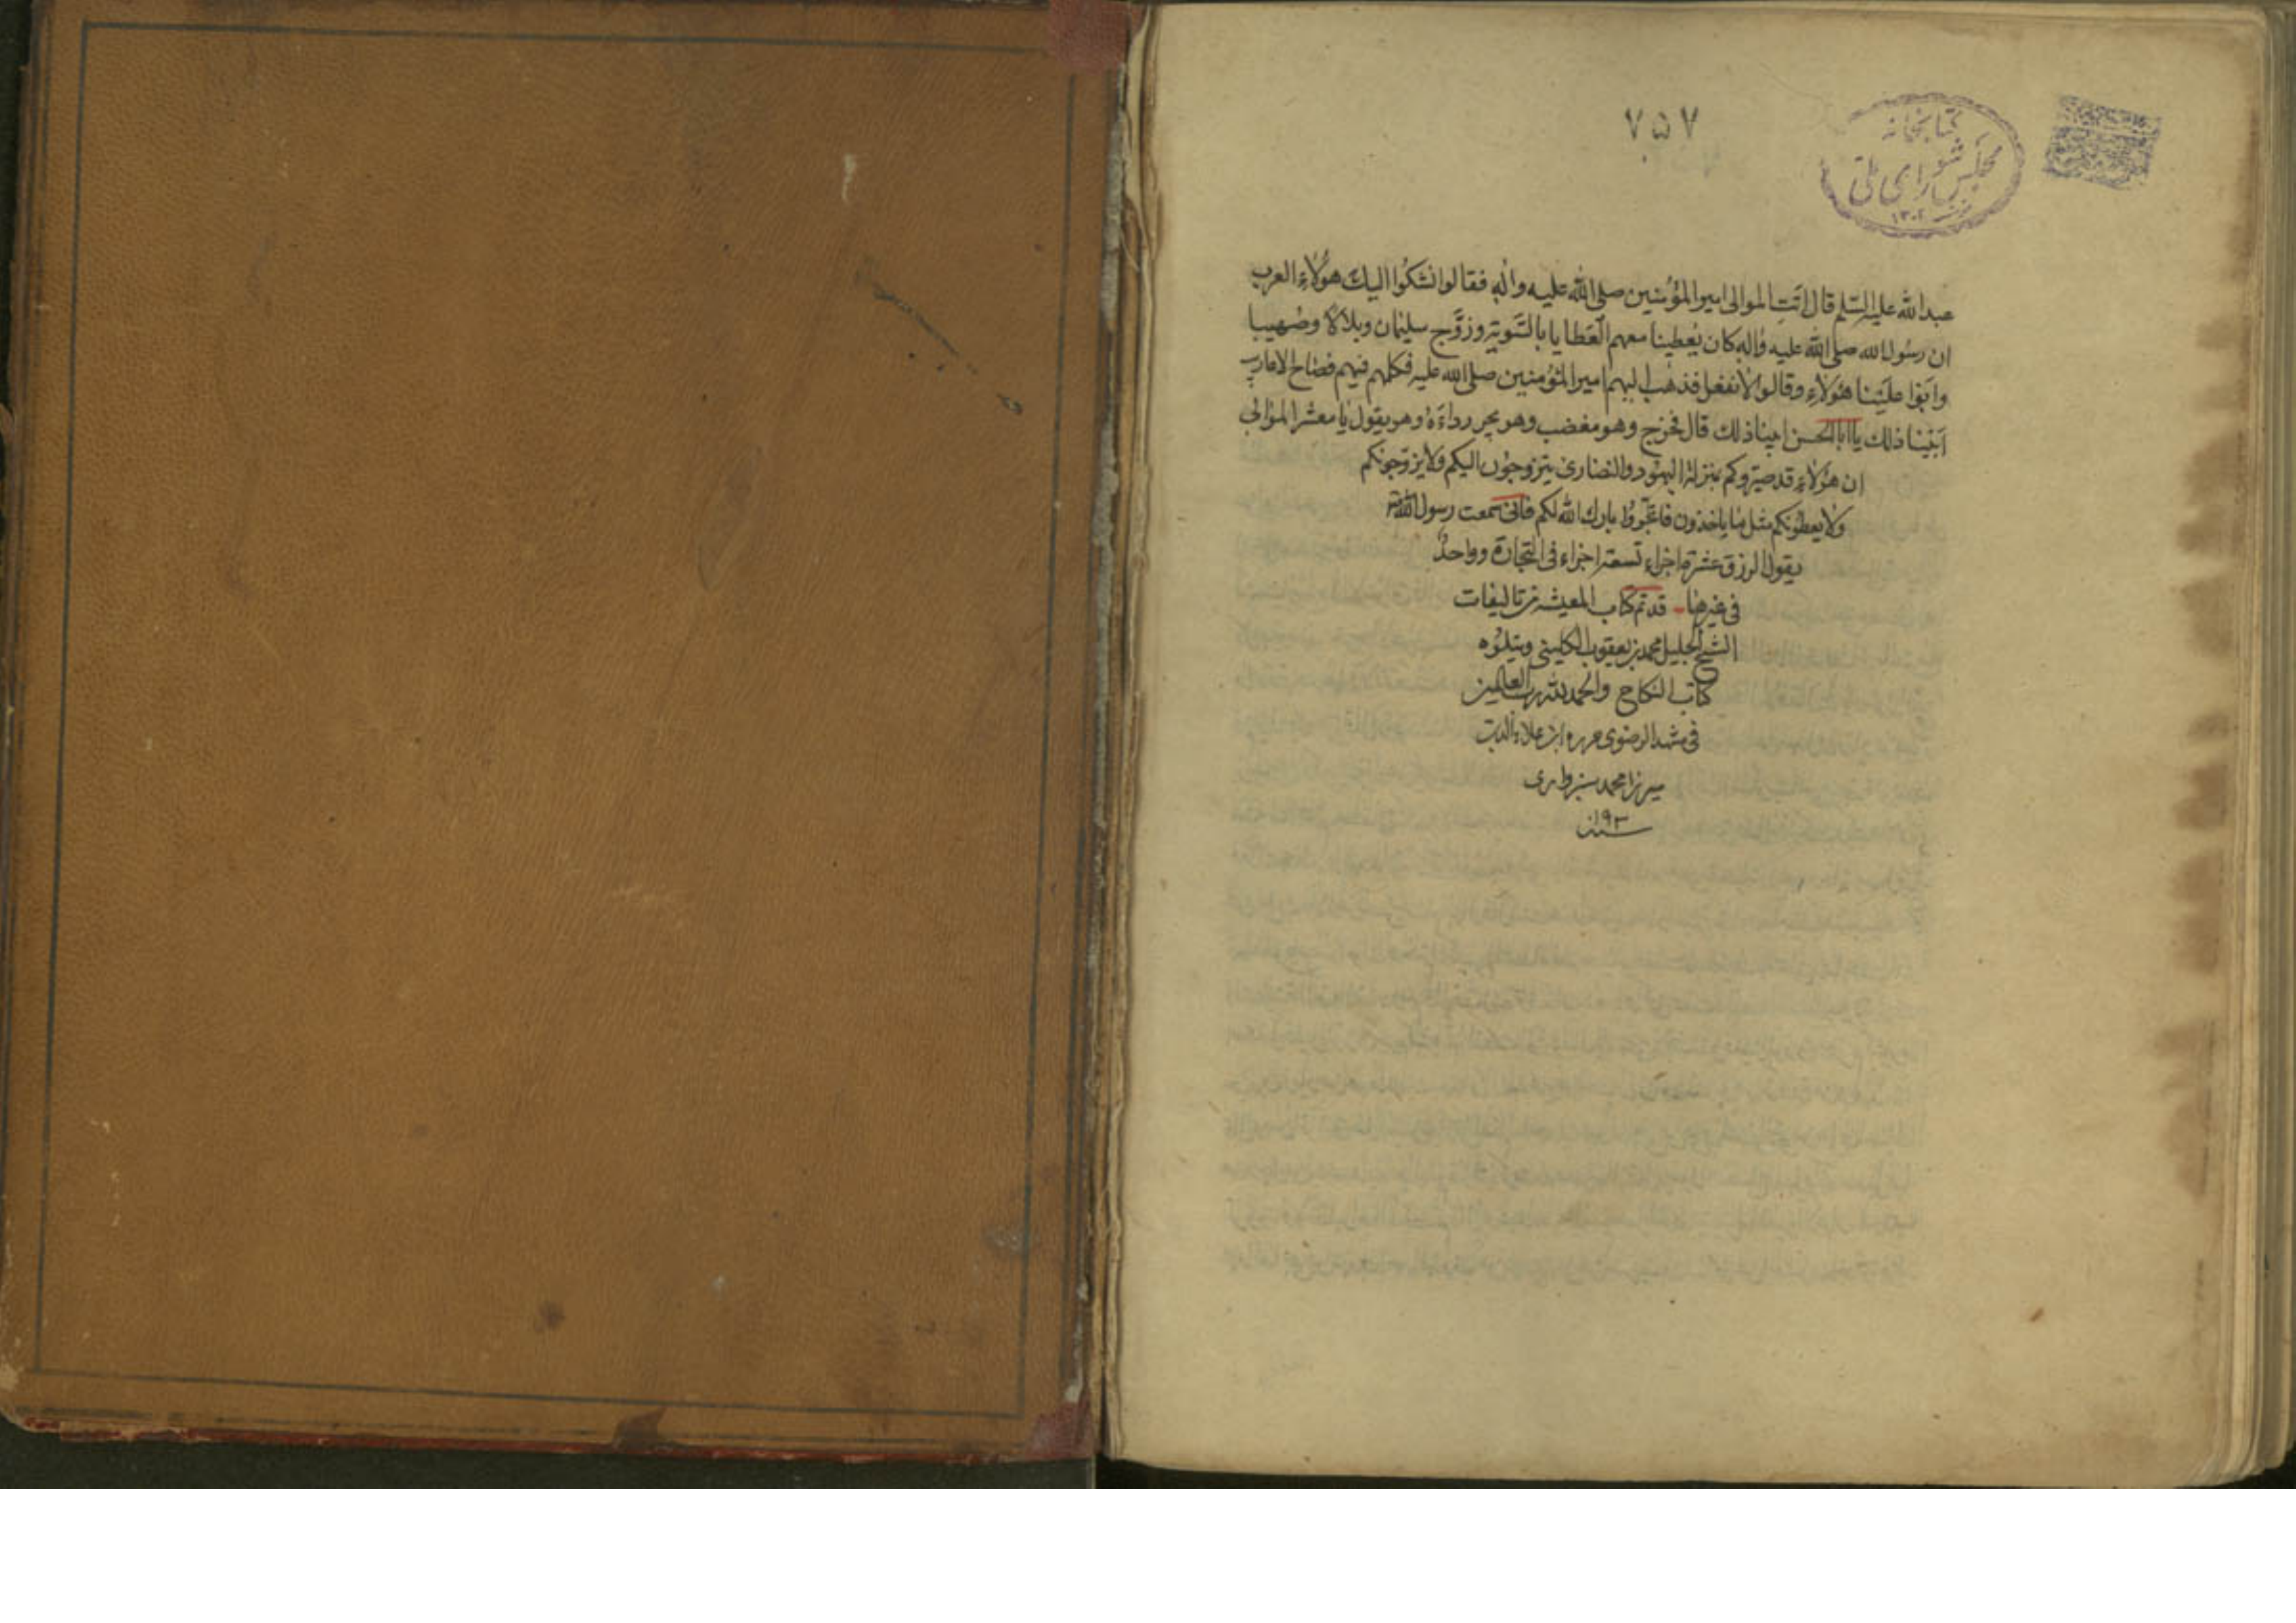 ۷۵۷
کتابخانه
مجلس شورای ملی
۱۳۰۲
عبدالله عليه السّلم قال اتَتِ الموالى امير المؤمنين صلى الله عليه واله فقالوا نشكوا اليك هؤلاء العرب
ان رسول الله صلى الله عليه واله كان يُعطينا معهم العَطايا بالسّوية وزوَّج سليمان وبلالا وصُهيبا
وابَوا علَينا هؤلاء وقالوا لا نفعل فذهب اليهم امير المؤمنين صلى الله عليه فكلمهم فيهم فصاح الاعاريب
ابَينا ذلك يا ابا الحسن ابينا ذلك قال فخرج وهو مغضب وهو يجر رداءَهُ وهو يقول يا معشر الموالى
ان هؤلاء قد صيّروكم بمنزلة اليهود والنصارى يتزوجون اليكم ولا يزوّجونكم
ولا يعطونكم مثل ما ياخذون فاتجروا بارك الله لكم فانى سمعت رسول الله
يقول الرزق عشرة اجزاء تسعة اجزاء فى التجارة وواحدٌ
فى غيرها قد تم كتاب المعيشه من تاليفات
الشيخ الجليل محمد بن يعقوب الكلينى ويتلوه
كتاب النكاح والحمد لله رب العالمين
فى مشهد الرضوى حرره ابن علاء الدين
ميرزا محمد سبزوارى
سنة